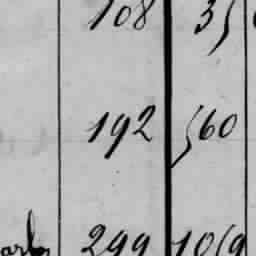 108 35
192 560
299 1059